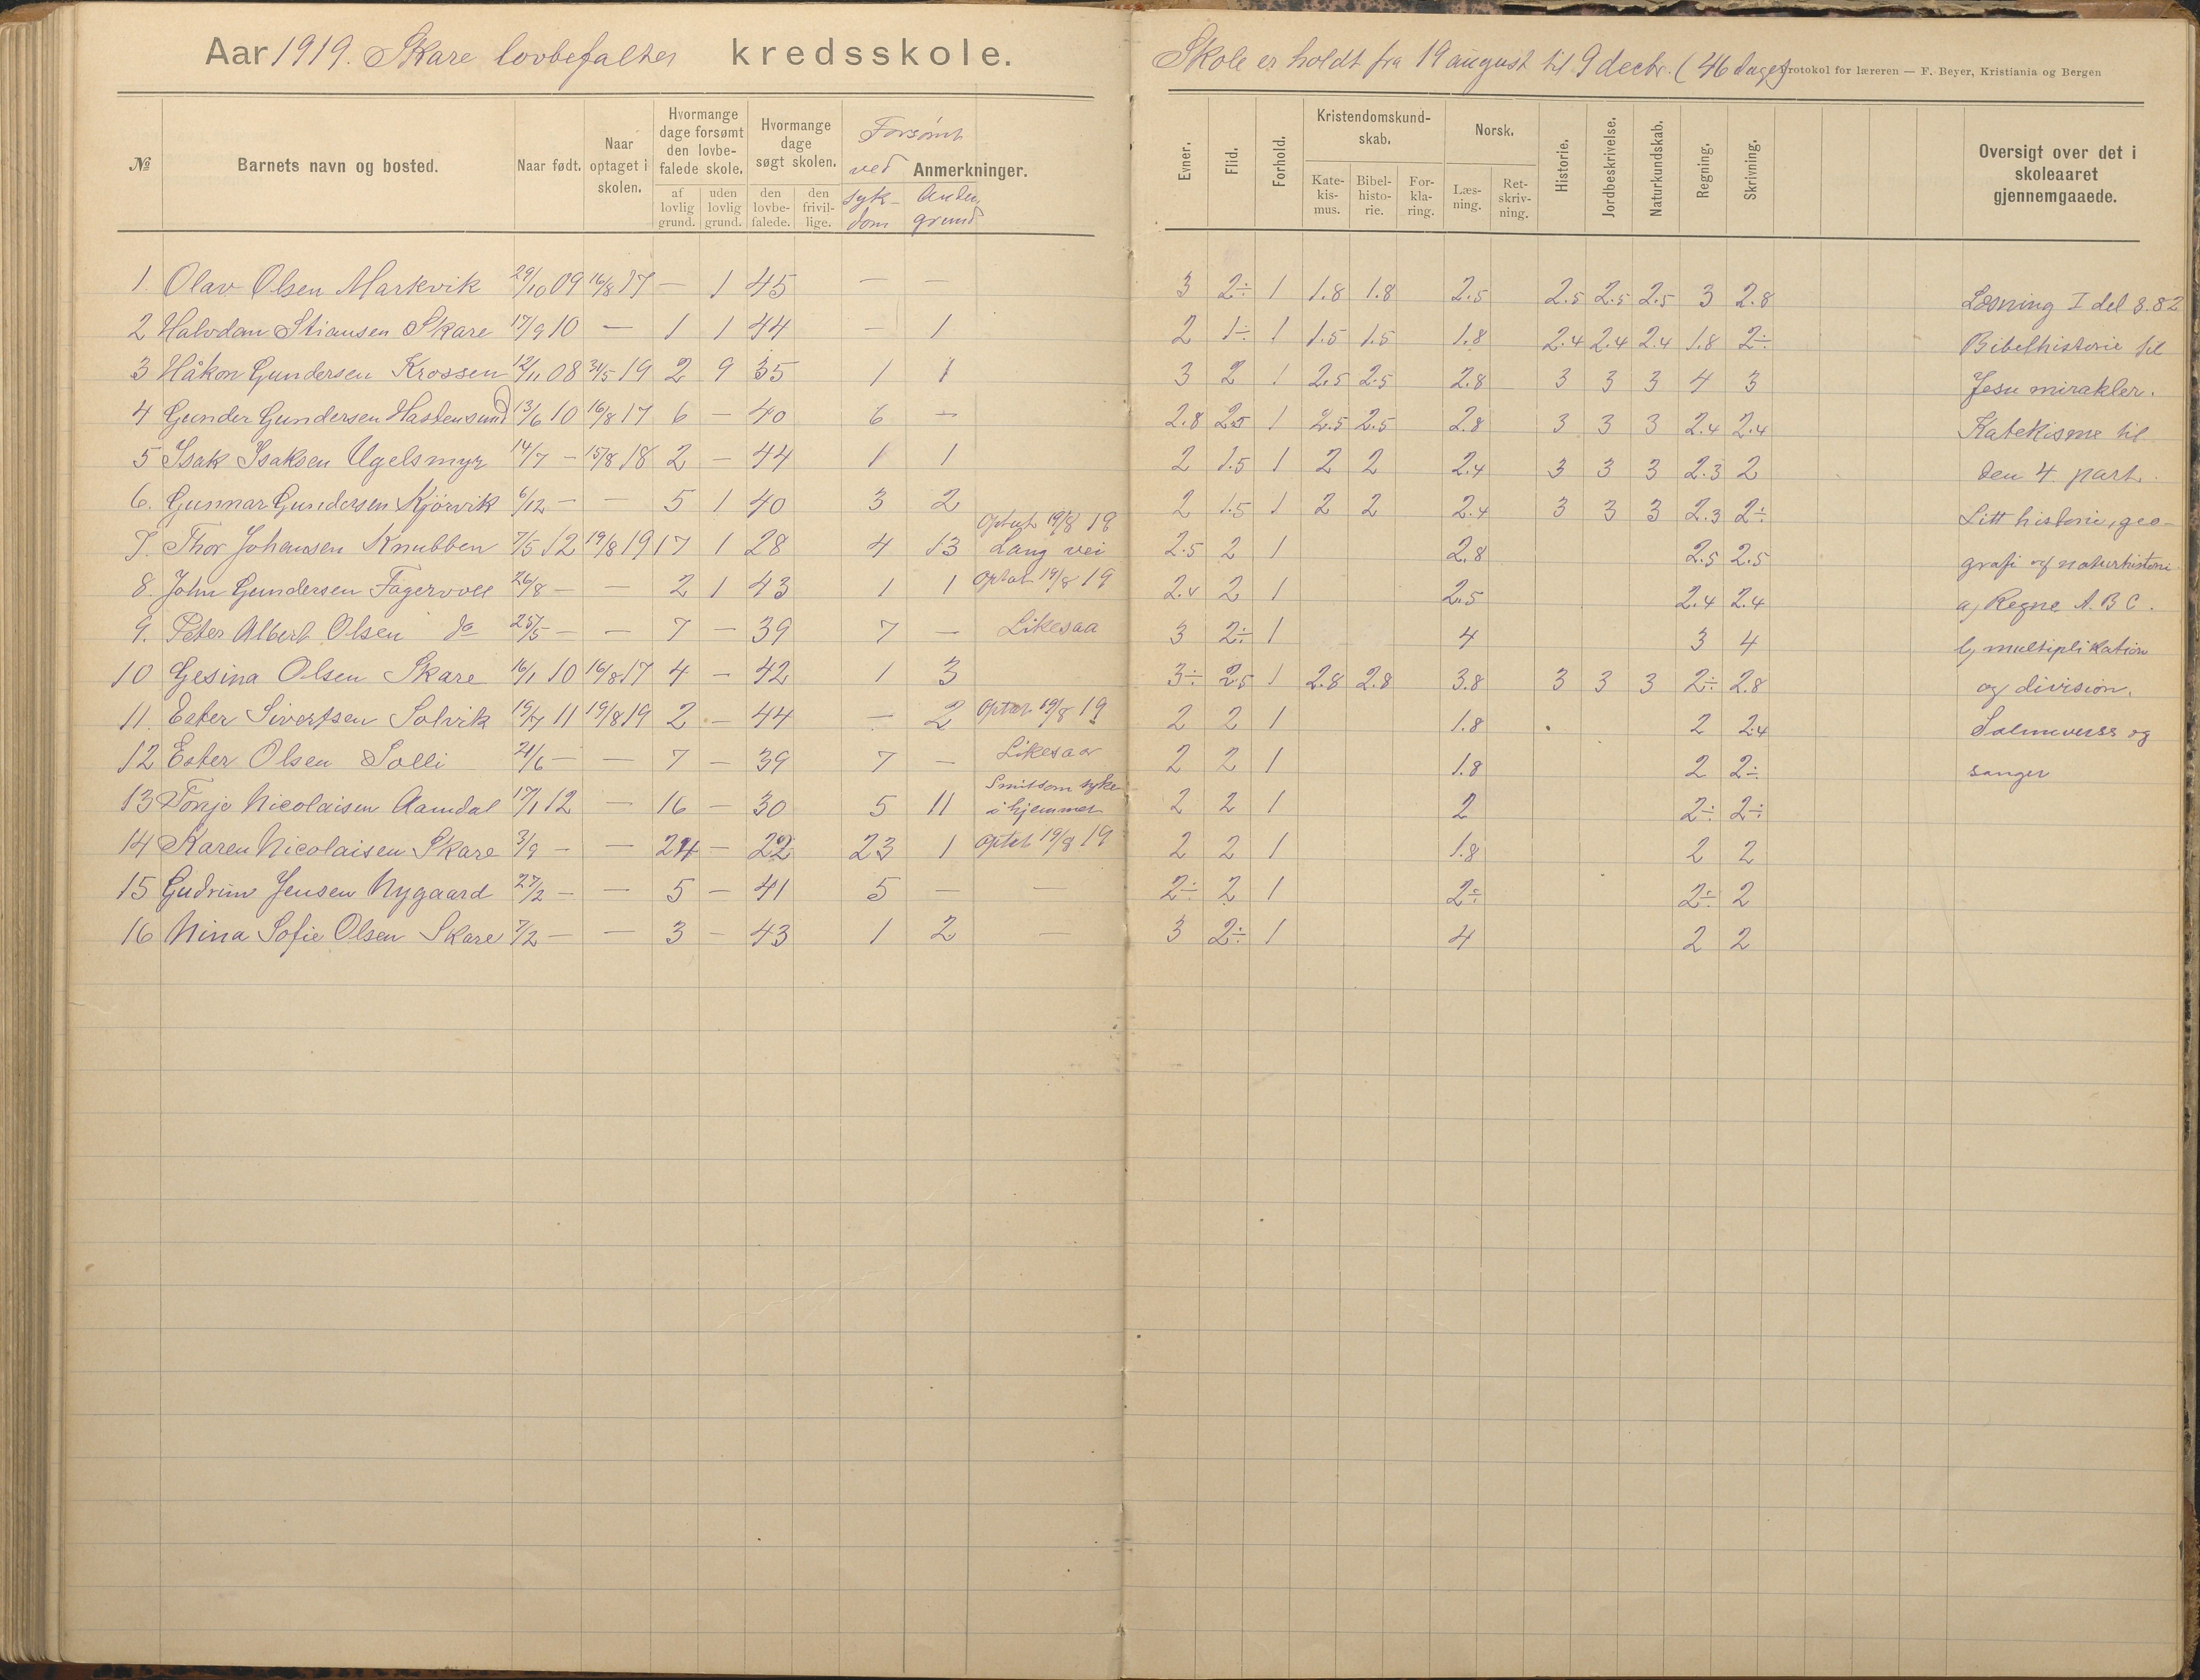 Aar 1919. Skare lovbefaltes kredsskole.
Skole er holdt fra 19 august til 9 decbr. (46 dage)
Protokol for læreren — F. Beyer, Kristiania og Bergen
№ Barnets navn og bosted. Naar født. Naar optaget i skolen. Hvormange dage forsømt den lovbefalede skole. af lovlig grund. uden lovlig grund. Hvormange dage søgt skolen. den lovbefalede. den frivillige. Forsømt ved sykdom Anden grund Anmerkninger.
Evner. Flid. Forhold. Kristendomskundskab. Katekismus. Bibelhistorie. Forklaring. Norsk. Læsning. Retskrivning. Historie. Jordbeskrivelse. Naturkundskab. Regning. Skrivning. Oversigt over det i skoleaaret gjennemgaaede.
1. Olav Olsen Markvik 29/10 09 16/8 17 — 1 45 — — 3 2÷ 1 1.8 1.8 2.5 2.5 2.5 2.5 3 2.8 Læsning I del s. 82
2 Halvdan Stiansen Skare 17/9 10 — 1 1 44 — 1 2 1÷ 1 1.5 1.5 1.8 2.4 2.4 2.4 1.8 2÷ Bibelhistorie til
3 Håkon Gundersen Krossen 12/11 08 31/5 19 2 9 35 1 1 3 2 1 2.5 2.5 2.8 3 3 3 4 3 Jesu mirakler.
4 Gunder Gundersen Hastensund 13/6 10 16/8 17 6 — 40 6 — 2.8 2.5 1 2.5 2.5 2.8 3 3 3 2.4 2.4 Katekisme til
5 Isak Isaksen Ugelsmyr 14/7 — 15/8 18 2 — 44 1 1 2 1.5 1 2 2 2.4 3 3 3 2.3 2 den 4 part.
6. Gunnar Gundersen Kjørvik 6/12 — — 5 1 40 3 2 2 1.5 1 2 2 2.4 3 3 3 2.3 2÷ Litt historie, geo-
7. Thor Johansen Knubben 7/5 12 19/8 19 17 1 28 4 13 Optat 19/8 19 Lang vei 2.5 2 1 2.8 2.5 2.5 grafi og naturhistorie
8. John Gundersen Fagervoll 26/8 — — 2 1 43 1 1 Optat 19/8 19 2.4 2 1 2.5 2.4 2.4 a, Regne A. B C.
9. Peter Albert Olsen do 25/5 — — 7 — 39 7 — Likesaa 3 2÷ 1 4 3 4 b, multiplikation
10 Gesina Olsen Skare 16/1 10 16/8 17 4 — 42 1 3 3÷ 2.5 1 2.8 2.8 3.8 3 3 3 2÷ 2.8 og division.
11. Ester Sivertsen Solvik 19/7 11 19/8 19 2 — 44 — 2 Optat 19/8 19 2 2 1 1.8 2 2.4 Salmevers og
12 Ester Olsen Solli 21/6 — — 7 — 39 7 — Likesaa 2 2 1 1.8 2 2÷ sanger
13 Tonje Nicolaisen Aamdal 17/1 12 — 16 — 30 5 11 Smitsom syke i hjemmet 2 2 1 2 2÷ 2÷
14 Karen Nicolaisen Skare 3/9 — — 24 — 22 23 1 Optat 19/8 19 2 2 1 1.8 2 2
15 Gudrun Jensen Nygaard 27/2 — — 5 — 41 5 — — 2÷ 2 1 2÷ 2÷ 2
16 Nina Sofie Olsen Skare 7/2 — — 3 — 43 1 2 — 3 2÷ 1 4 2 2